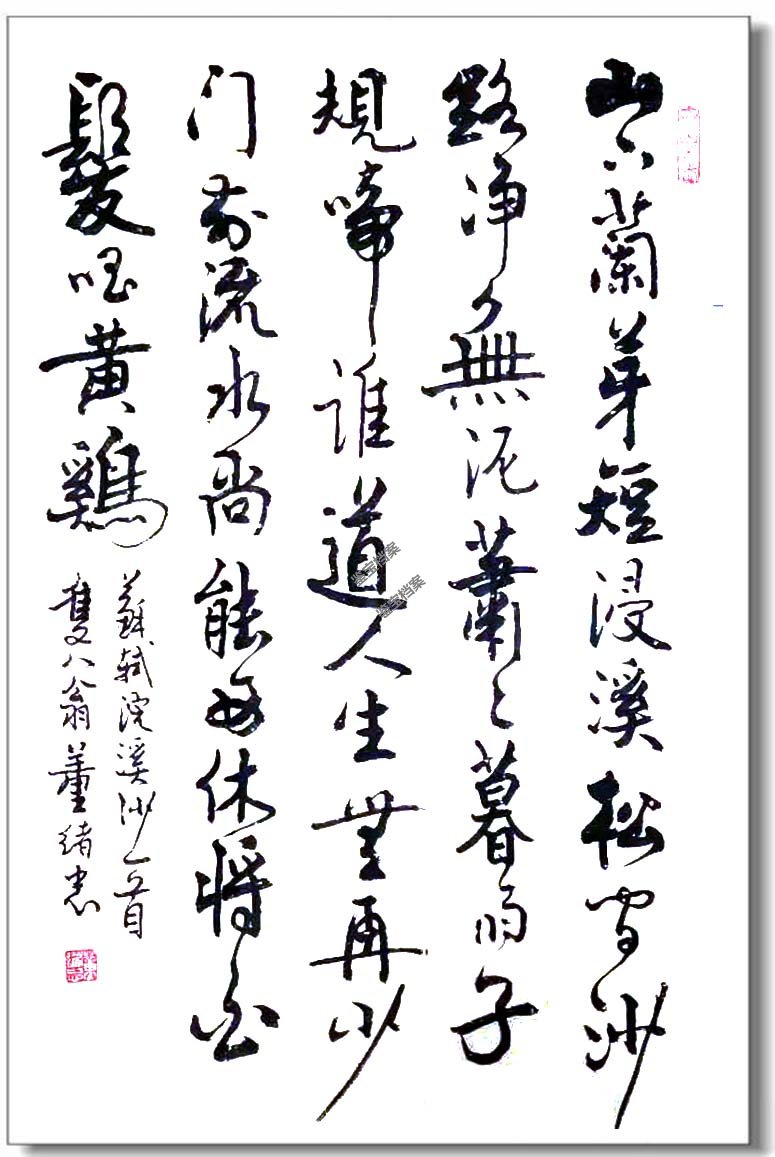 山下蘭芽短浸溪松間沙
路净々無泥蕭々暮雨子
規啼誰道人生無再少
门前流水尚能西休將白
髮唱黄鷄
蘇軾浣溪沙一首
雙八翁董緒忠